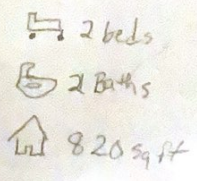 2 beds
2 Baths
820 sq ft